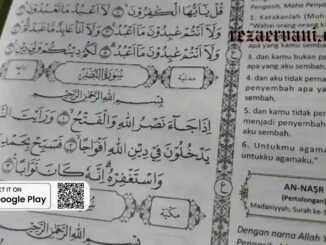 قُلْ يَا أَيُّهَا الْكَافِرُونَ لَا أَعْبُدُ مَا تَعْبُدُونَ
وَلَا أَنْتُمْ عَابِدُونَ مَا أَعْبُدُ وَلَا أَنَا عَابِدٌ مَا عَبَدْتُمْ
وَلَا أَنْتُمْ عَابِدُونَ مَا أَعْبُدُ لَكُمْ دِينُكُمْ وَلِيَ دِينِ
سُورَةُ النَّصْرِ
مدنية
بِسْمِ اللَّهِ الرَّحْمَنِ الرَّحِيمِ
إِذَا جَاءَ نَصْرُ اللَّهِ وَالْفَتْحُ وَرَأَيْتَ النَّاسَ
يَدْخُلُونَ فِي دِينِ اللَّهِ أَفْوَاجًا فَسَبِّحْ بِحَمْدِ
وَاسْتَغْفِرْهُ إِنَّهُ كَانَ تَوَّابًا
مكية
بِسْمِ اللَّهِ الرَّحْمَنِ الرَّحِيمِ
Pengasih, Maha Penya
1. Katakanlah (Muh
"Wahai orang-orang
rezaervani.co
apa yang kamu semba
3. dan kamu bukan pe
apa yang aku sembah,
4. dan aku tidak perna
penyembah apa ya
sembah,
5. dan kamu tidak perna
menjadi penyembah
aku sembah.
6. Untukmu agamamu
untukku agamaku."
AN-NAṢR
(Pertolongan)
Madaniyyah, Surah ke-
Dengan nama Allah
GET IT ON
Google Play